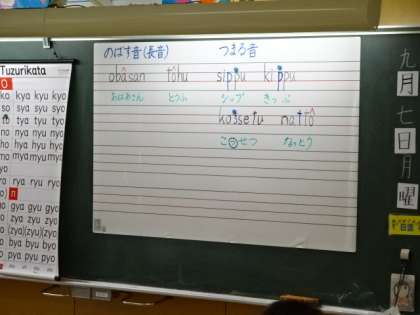 Tuzurikata
O
ko kya kyu kyo
so sya syu syo
tya tyu tyo
no nya nyu nyo
hya hyu hyo
mo mya myu myo
yo
ro rya ryu ryo
n
go gya gyu gyo
zo zya zyu zyo
(zya)(zyu)(zyo)
bo bya byu byo
po pya pyu pyo
のばす音(長音) つまる音
obâsan tôhu sippu kippu
おばあさん とうふ シップ きっぷ
kossetu nattô
こっせつ なっとう
九月七日 曜